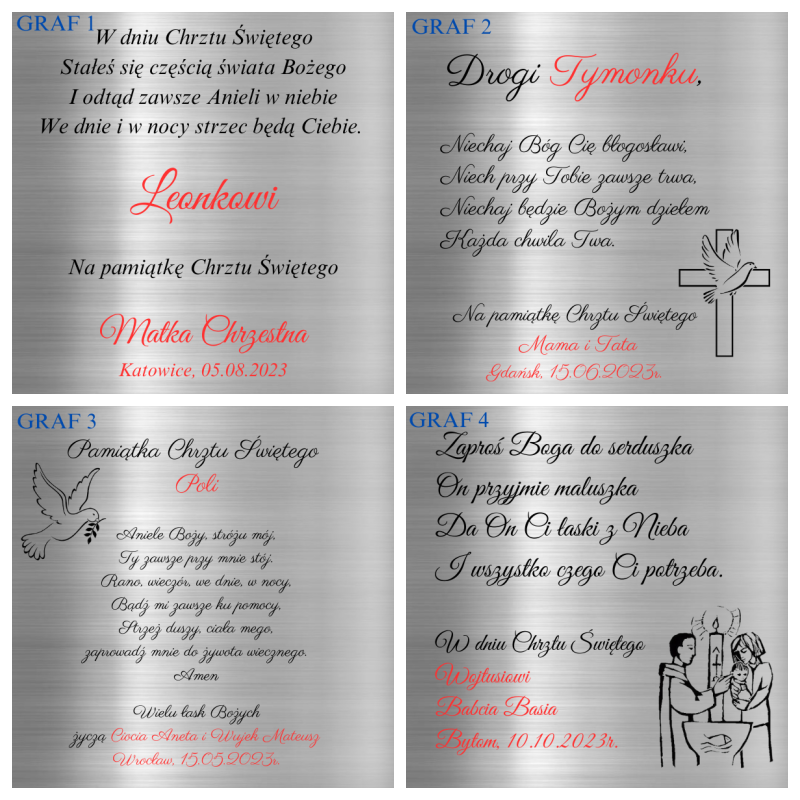 GRAF 1
W dniu Chrztu Świętego
Stałeś się częścią świata Bożego
I odtąd zawsze Anieli w niebie
We dnie i w nocy strzec będą Ciebie.
Leonkowi
Na pamiątkę Chrztu Świętego
Matka Chrzestna
Katowice, 05.08.2023
GRAF 2
Drogi Tymonku,
Niechaj Bóg Cię błogosławi,
Niech przy Tobie zawsze trwa,
Niechaj będzie Bożym dziełem
Każda chwila Twa.
Na pamiątkę Chrztu Świętego
Mama i Tata
Gdańsk, 15.06.2023r.
GRAF 3
Pamiątka Chrztu Świętego
Poli
Aniele Boży, stróżu mój,
Ty zawsze przy mnie stój.
Rano, wieczór, we dnie, w nocy,
Bądź mi zawsze ku pomocy,
Strzeż duszy, ciała mego,
zaprowadź mnie do żywota wiecznego.
Amen
Wielu łask Bożych
życzą Ciocia Aneta i Wujek Mateusz
Wrocław, 15.05.2023r.
GRAF 4
Zaproś Boga do serduszka
On przyjmie maluszka
Da On Ci łaski z Nieba
I wszystko czego Ci potrzeba.
W dniu Chrztu Świętego
Wojtusiowi
Babcia Basia
Bytom, 10.10.2023r.